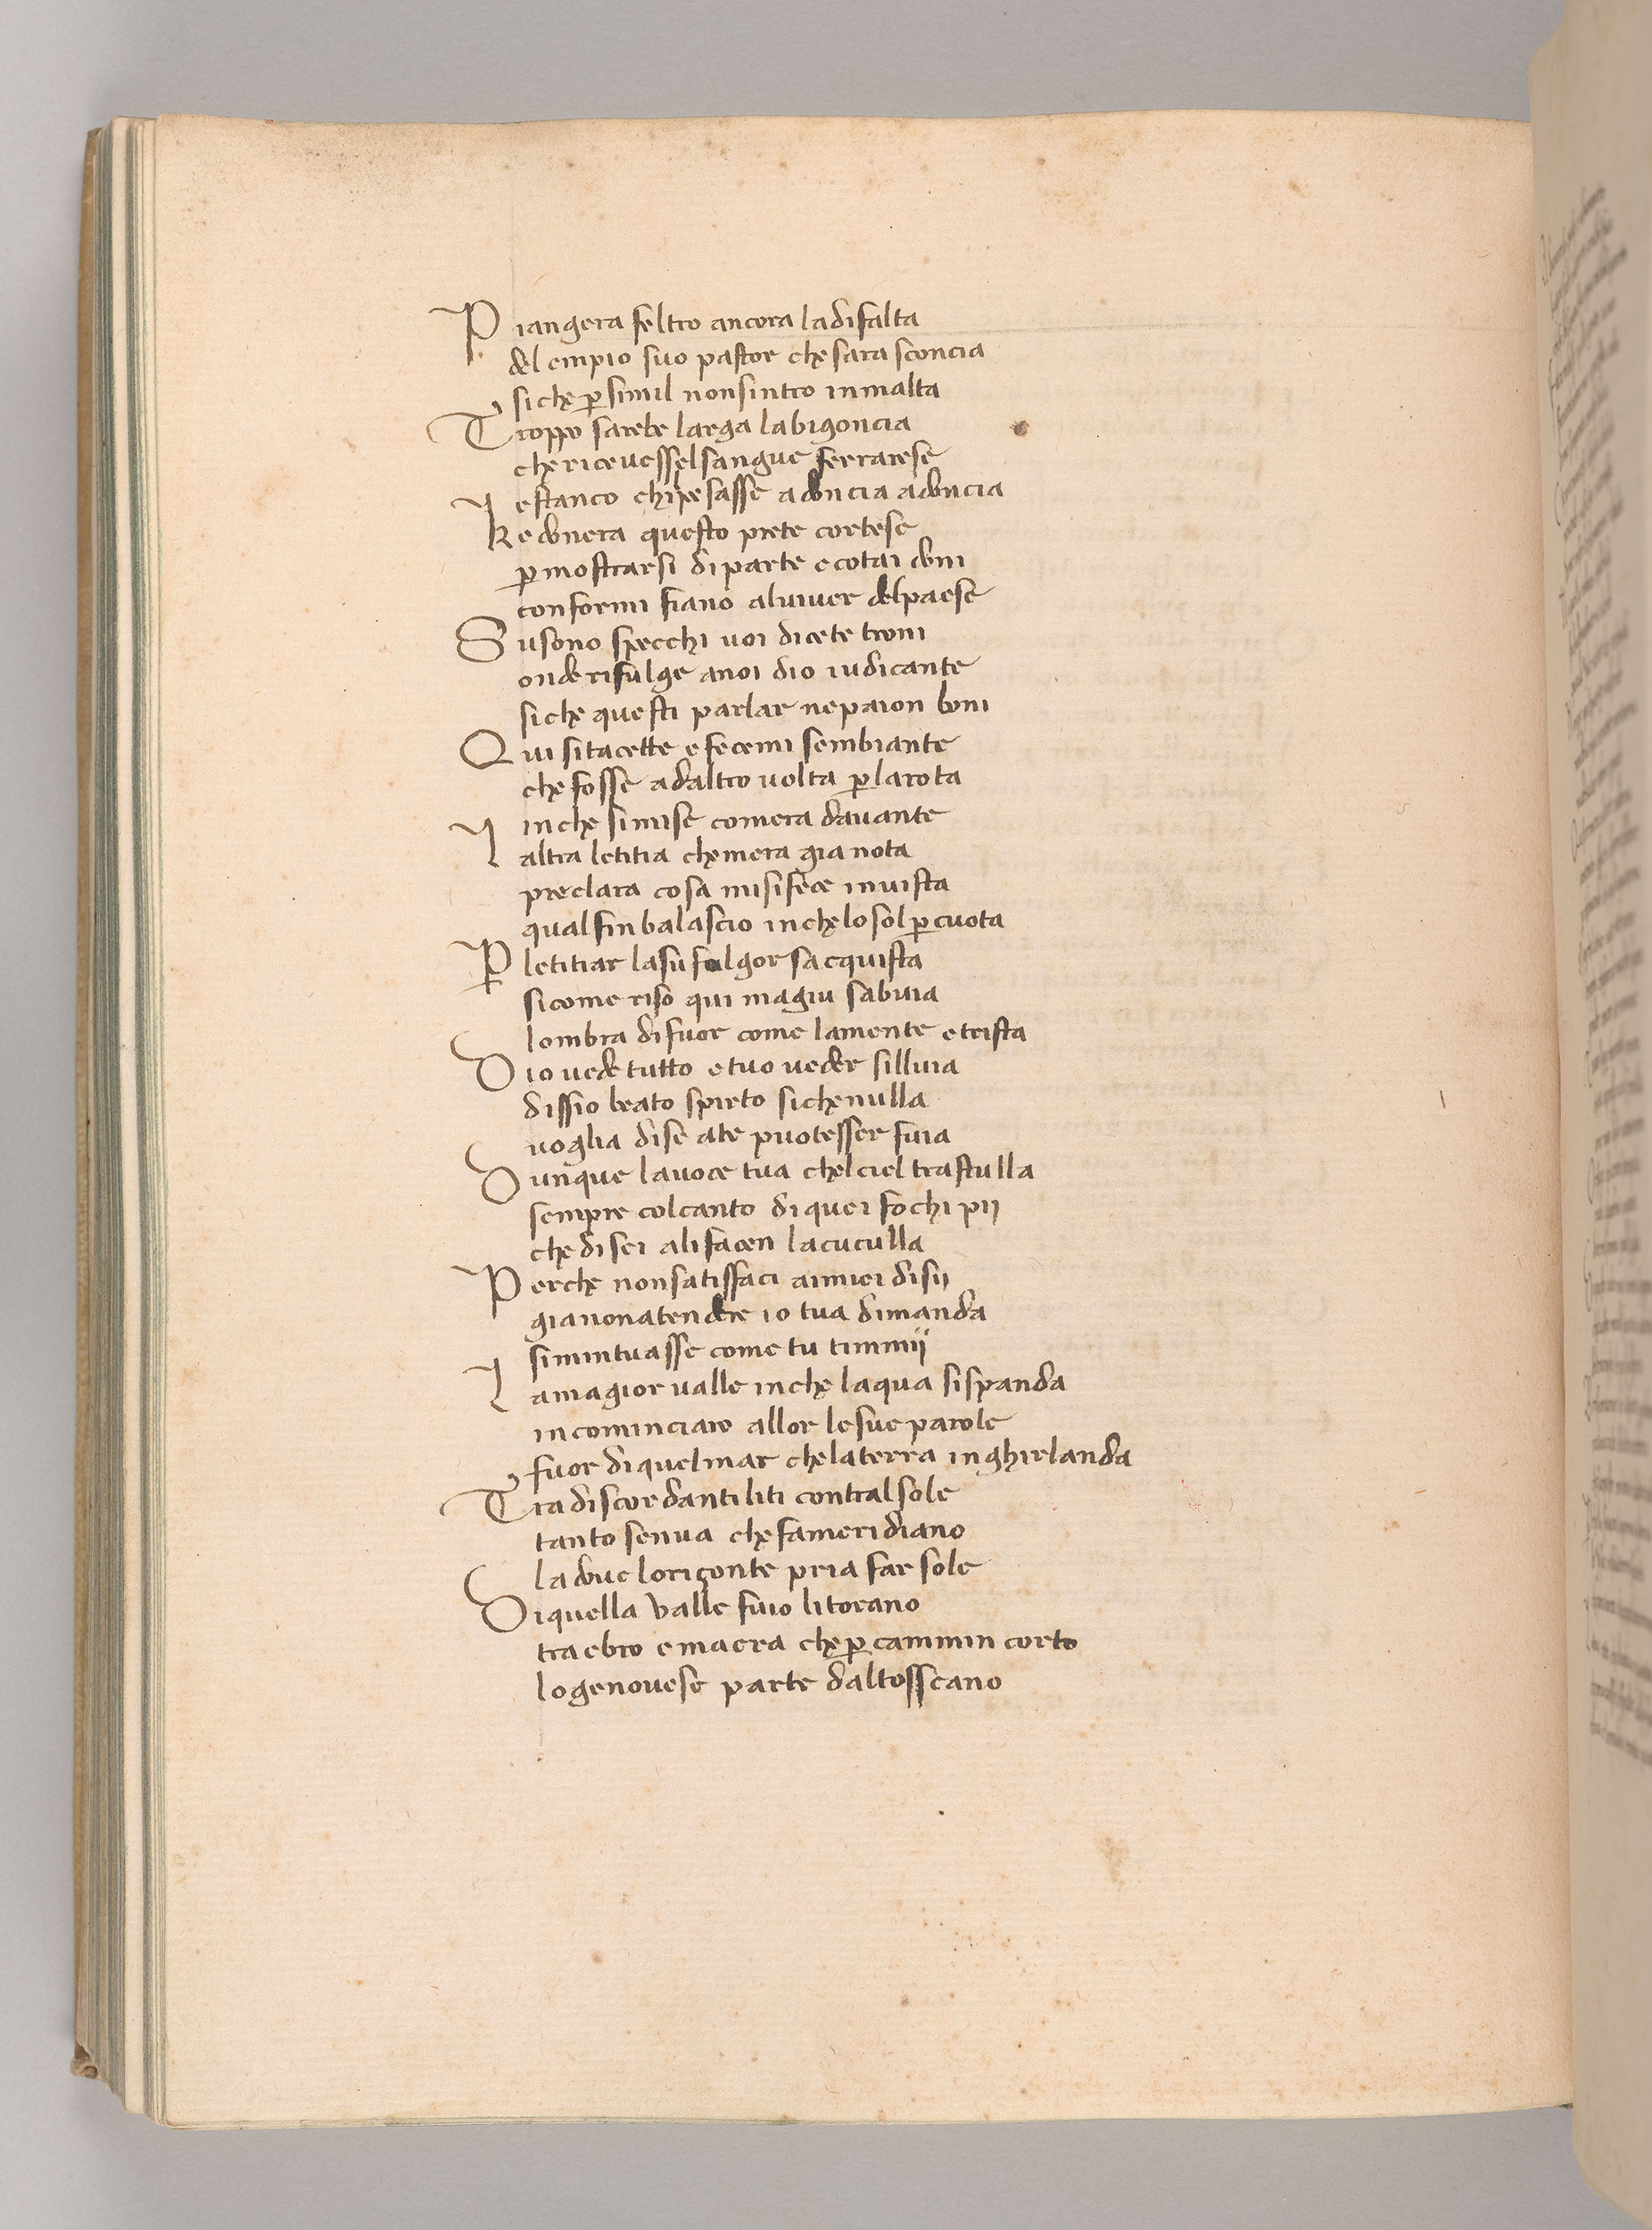 Piangera feltro ancora ladifalta
del empio suo pastor che sara sconcia
siche ꝑ simil nonsintro inmalta
Troppo sarebe larga labigoncia
chericevessel sangue ferrarese
e stanco chi pesasse adoncia adoncia
Ke donera questo prete cortese
ꝑ mostrarsi di parte e cotai doni
conformi fiano alviver del paese
Su sono specchi voi dicete troni
onde risulge anoi dio iudicante
siche questi parlar ne paion boni
Qui si tacette e fecemi sembiante
che fosse adaltro volta ꝑ larota
in che simise comera davante
L altra letitia chemera gia nota
preclara cosa misifece invista
qual fin balascio in chelo sol ꝑcuota
Ꝑ letitiar lasu fulgor sacquista
si come riso qui magiu sabuia
lombra difuor come lamente e trista
Dio vede tutto e tuo veder silluia
dissio beato spirto sichenulla
voglia dise ate puotesser fuia
Dunque lavoce tua chel ciel trastulla
sempre col canto di quei fochi pij
che di sei ali facen lacuculla
Perche nonsatissfaci aimiei disij
gia nonatendere io tua dimanda
simmtuasse come tu timmij
L amagior valle in che laqua si spanda
incominciaro allor lesue parole
fuor diquelmar chelaterra inghirlanda
Tra discordanti liti contral sole
tanto senva che fameridiano
la dove loriçonte pria far sole
Di quella valle fuio litorano
tra ebro e macra che ꝑ cammin corto
logenovese parte daltosscano